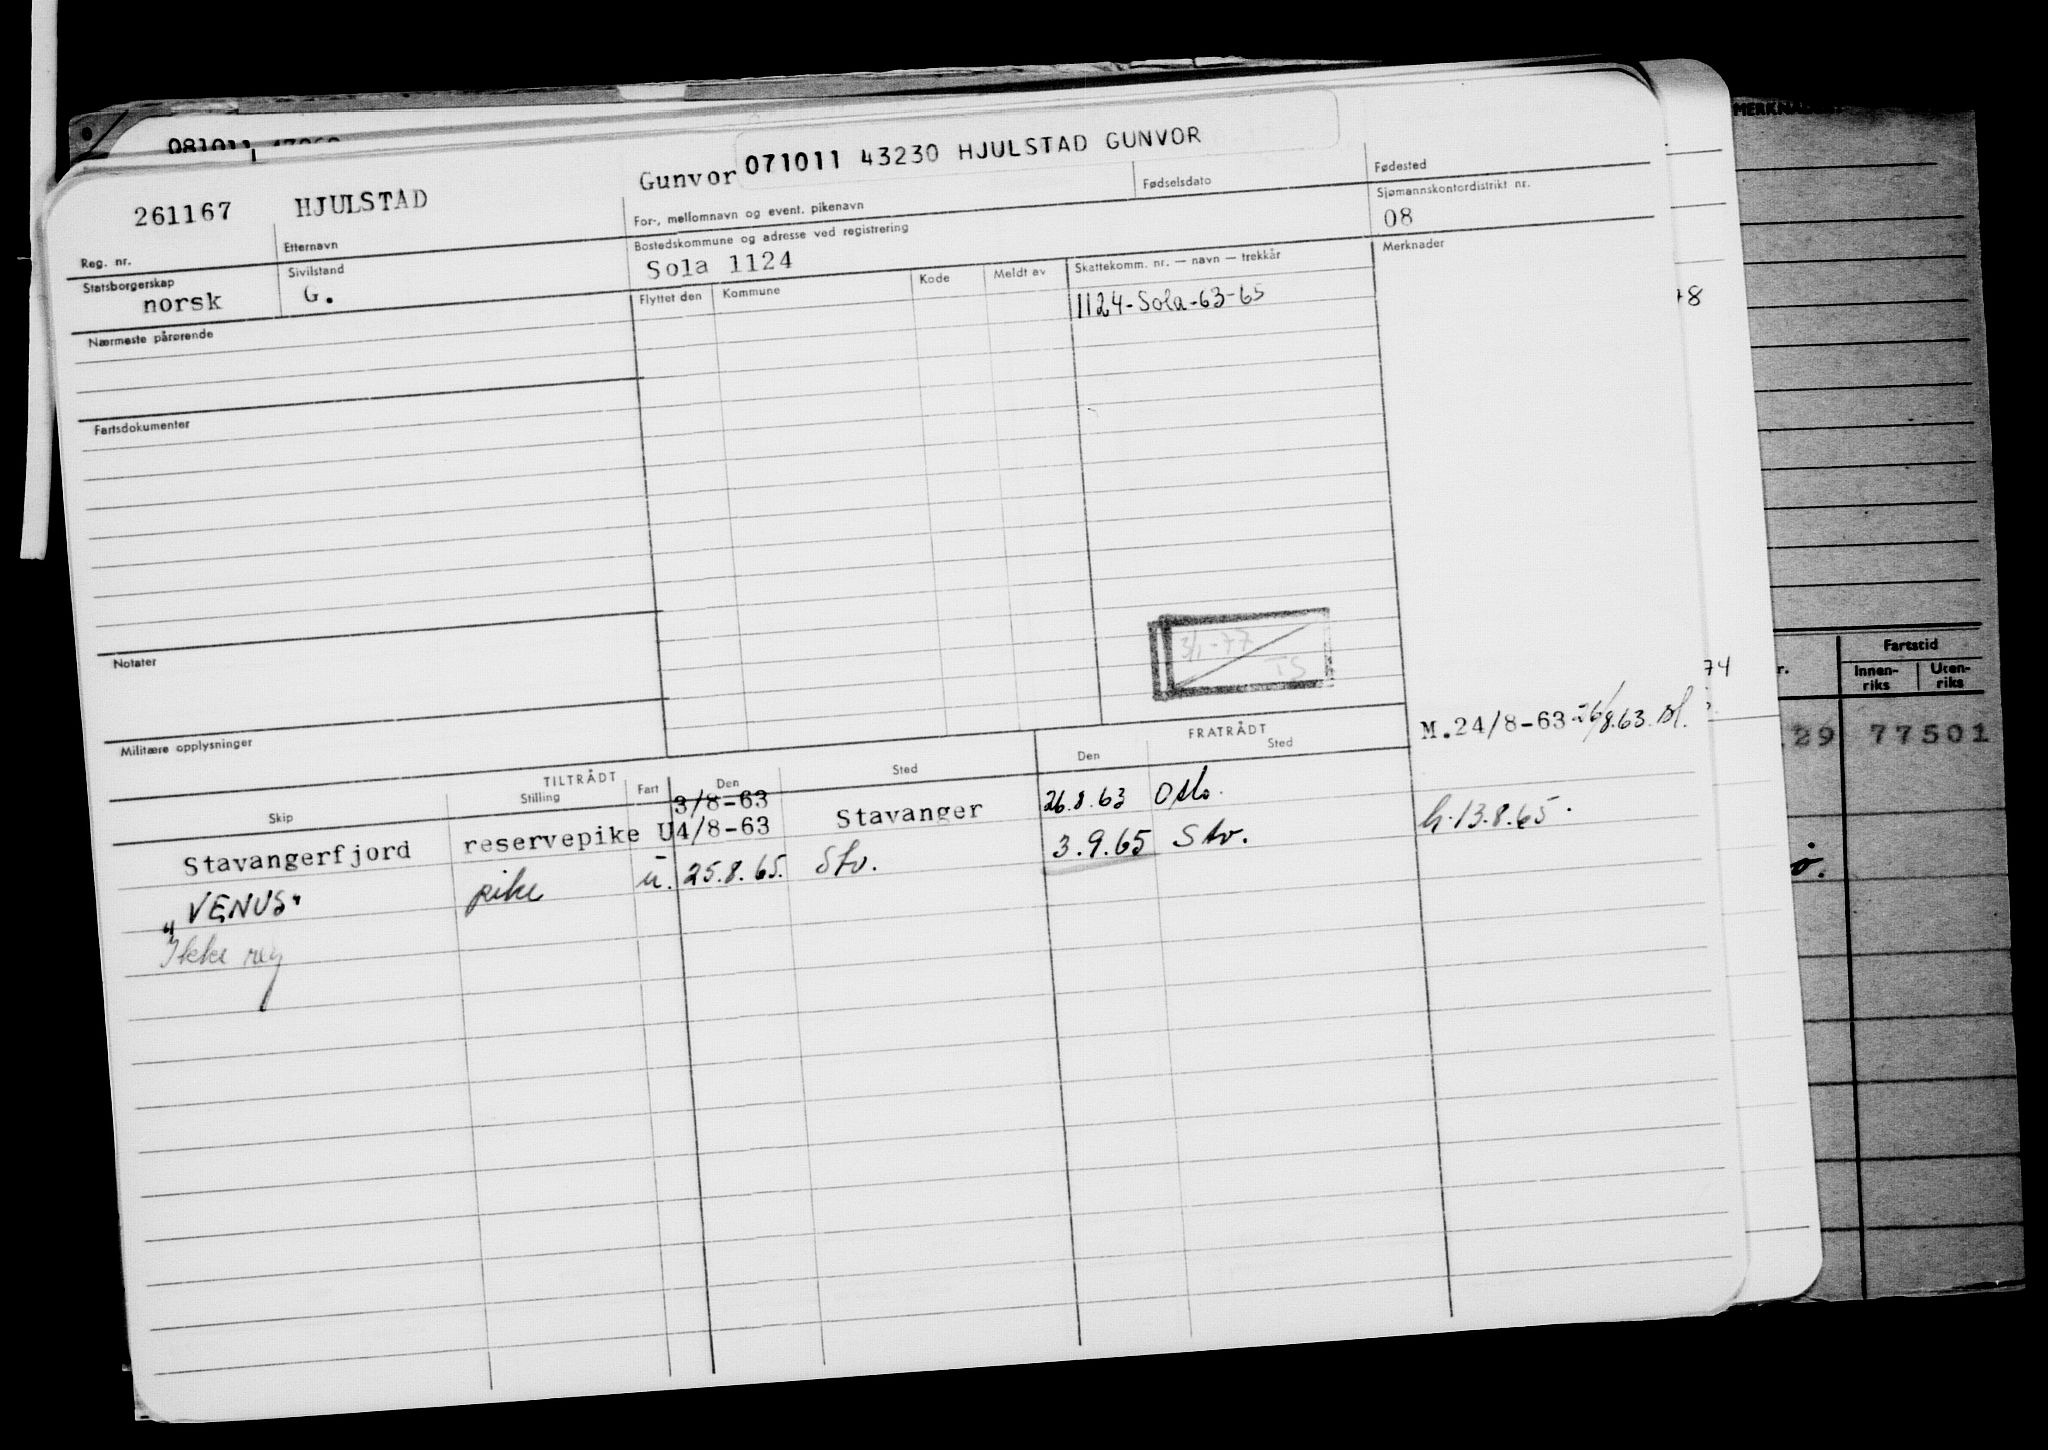 MERKNA
081011
071011 43230 HJULSTAD GUNVOR
261167 HJULSTAD Gunvor
Reg. nr. Etternavn For-, mellomnavn og event. pikenavn Fødselsdato Fødested
Statsborgerskap Sivilstand Bostedskommune og adresse ved registrering Sjømannskontordistrikt nr.
norsk G. Sola 1124 08
Nærmeste pårørende Flyttet den Kommune Kode Meldt av Skattekomm. nr. — navn — trekkår Merknader
1124-Sola-63-65
78
Fartsdokumenter
3/1-77
TS
Notater
Militære opplysninger
M.24/8-63 - 26/8.63.
74
Fartstid
Innen-riks Uten-riks
29 77501
TILTRÅDT FRATRÅDT
Skip Stilling Fart Den Sted Den Sted
3/8-63
Stavangerfjord reservepike U 4/8-63 Stavanger 26.8.63 Oslo.
"VENUS" pike u. 25.8.65. Stv. 3.9.65 Stv. h.13.8.65.
Ikke reg
ø.